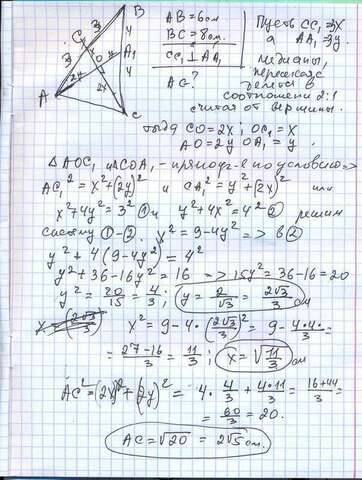 B
C₁
A₁
O
A
C
3
3
4
4
2y
2x
AB = 6см
BC = 8см.
CC₁ ⊥ AA₁
AC?
Пусть CC₁ = 3X
а AA₁ = 3y.
медианы,
пересекаясь
делятся в
соотношении 2:1
считая от вершины.
тогда CO = 2X ; OC₁ = X
AO = 2y OA₁ = y.
△AOC₁ и △COA₁ - прямоуг-е по условию =>
AC₁² = x² + (2y)² и CA₁² = y² + (2x)² или
x² + 4y² = 3² ① и y² + 4x² = 4² ② решим
систему ①-②. x² = 9 - 4y² => в ②
y² + 4(9 - 4y²) = 4²
y² + 36 - 16y² = 16 => 15y² = 36 - 16 = 20
y² = 20/15 = 4/3 ; y = 2/√3 = 2√3/3 см
x² = 9 - 4·(2√3/3)² = 9 - 4·4·/3 =
= 27-16/3 = 11/3 ; x = √11/3 см
AC² = (2x)² + (2y)² = 4·4/3 + 4·11/3 = 16+44/3 =
= 60/3 = 20.
AC = √20 = 2√5 см.